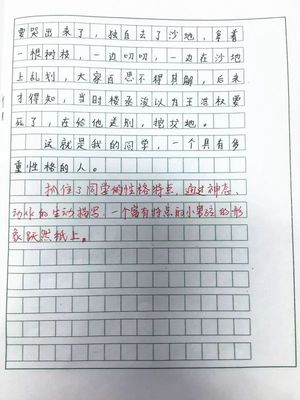 要哭出来了,独自去了沙地,拿着
一根树枝,一边叨叨,一边在沙地
上乱划,大家百思不得其解,后来
才得知,当时杨丞浚以为王浩权要
死了,在给他送别,挖坟地。
这就是我的同学,一个具有多
重性格的人。
抓住了同学的性格特点,通过神态、
动作的生动描写,一个富有特点的小男孩的形
象跃然纸上。